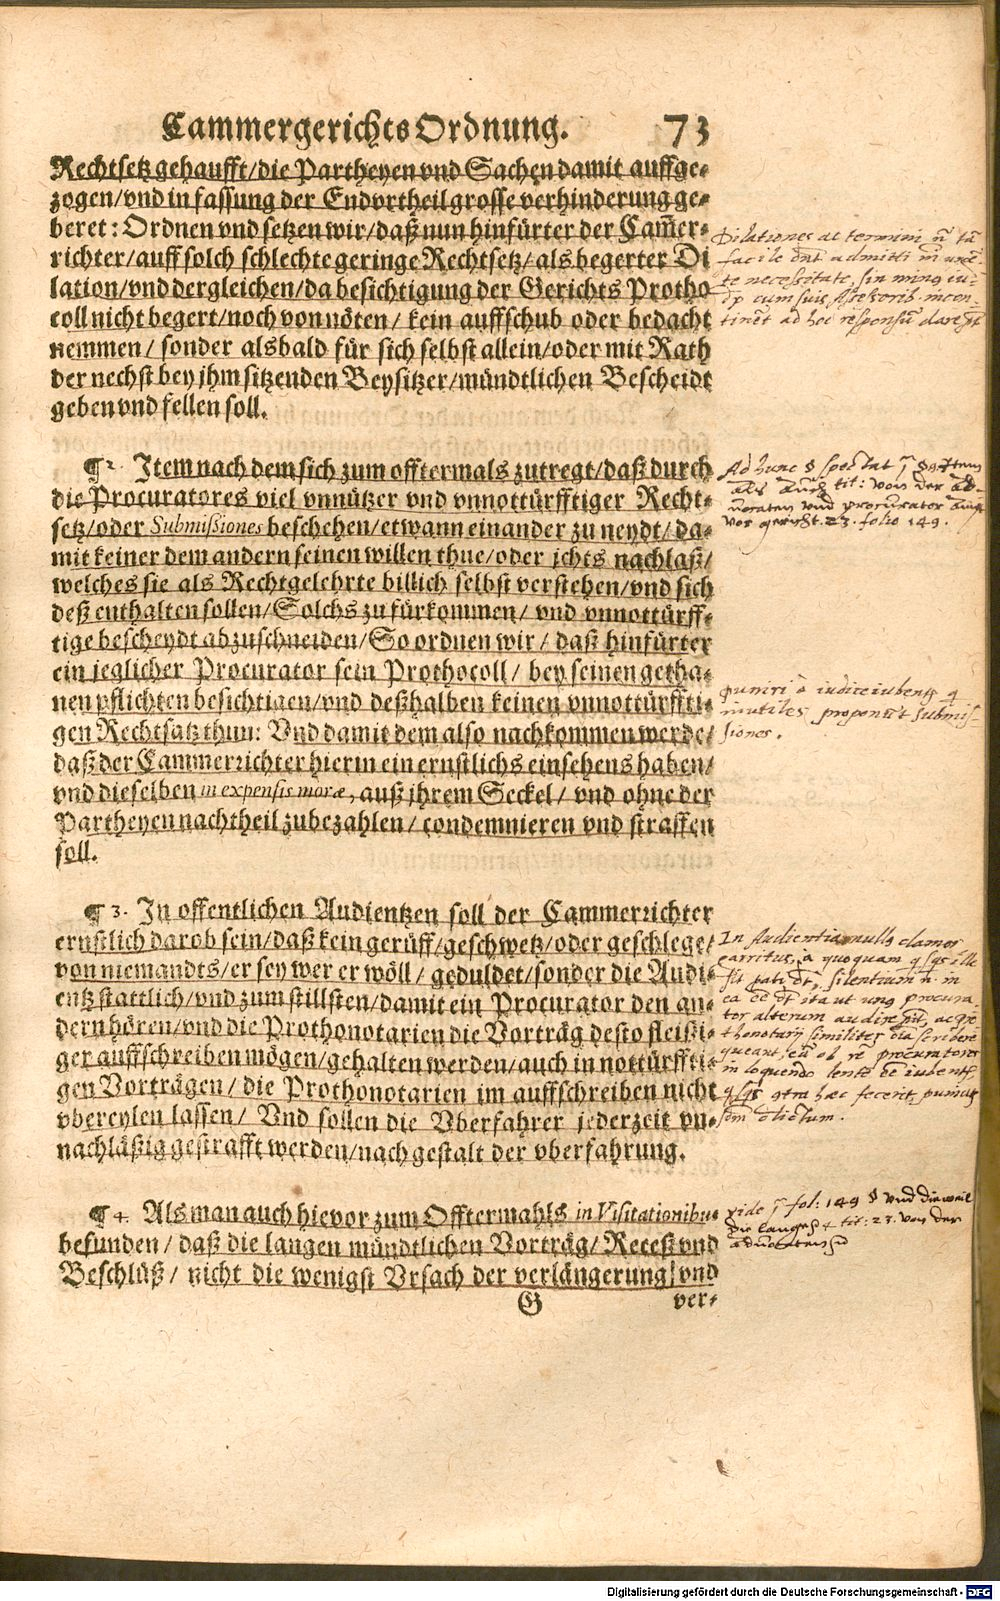 Cammergerichts Ordnung. 73
Rechtsetz gehaufft/die Partheyen vnd Sachen damit auffge-
zogen/vnd in fassung der Endvrtheil grosse verhinderung ge-
beret: Ordnen vnd setzen wir/daß nun hinfürter der Cam̃er-
richter/auff solch schlechte geringe Rechtsetz/als begerter Di
lation/vnd dergleichen/da besichtigung der Gerichts Protho
coll nicht begert/noch von nöten/ kein auffschub oder bedacht
nemmen/ sonder alsbald für sich selbst allein/oder mit Rath
der nechst bey jhm sitzenden Beysitzer/mündtlichen Bescheidt
geben vnd fellen soll.
Dilationes ac termini
facile admitti
te necessitate,
cum suis
ad hoc responsū
¶ 2. Item nach dem sich zum offtermals zutregt/daß durch
die Procuratores viel vnnützer vnd vnnottürfftiger Recht-
setz/oder Submißiones beschehen/etwann einander zu neydt/da-
mit keiner dem andern seinen willen thue/oder jchts nachlaß/
welches sie als Rechtgelehrte billich selbst verstehen/vnd sich
deß enthalten sollen/Solchs zu fürkommen/ vnd vnnottürff-
tige bescheydt abzuschneiden/So ordnen wir/ daß hinfürter
ein jeglicher Procurator sein Prothocoll/ bey seinen getha-
nen pflichten besichtigen/vnd deßhalben keinen vnnottürffti-
gen Rechtsatz thun: Vnd damit dem also nachkommen werde/
daß der Cammerrichter hierin ein ernstlichs einsehens haben/
vnd dieselben in expensis moræ, auß jhrem Seckel/ vnd ohne der
Partheyen nachtheil zubezahlen/ condemnieren vnd straffen
soll.
Ad hunc § spectat § Item
als auch tit: von der ad-
uocaten vnd procurator
vor gericht. 23. folio 149.
inutiles proponūt submis-
siones.
¶ 3. In offentlichen Audientzen soll der Cammerrichter
ernstlich darob sein/daß kein gerüff/geschwetz/oder geschlege/
von niemandts/er sey wer er wöll/ geduldet/sonder die Audi-
entz stattlich/vnd zum stillsten/damit ein Procurator den an-
dern hören/vnd die Prothonotarien die Vorträg desto fleißi-
ger auffschreiben mögen/gehalten werden/auch in nottürffti-
gen Vorträgen/ die Prothonotarien im auffschreiben nicht
vbereylen lassen/ Vnd sollen die Vberfahrer jederzeit vn-
nachläßig gestrafft werden/nach gestalt der vberfahrung.
In Audientia nullus clamor
garritus, a quoquam
silentium
ea ita ut procura
tor alterum audire
thonotarij similiter scribere
queant, procuratores
in loquendo lente
hæc fecerit,
delictum.
¶ 4. Als man auch hievor zum Offtermahls in Visitationibus
befunden/ daß die langen mündtlichen Vorträg/ Receß vnd
Beschlüß/ nicht die wenigst Vrsach der verlängerung/ vnd
vide fol: 149 § vnd dieweil
die langen tit: 23. von der
aduocaten
G ver-
Digitalisierung gefördert durch die Deutsche Forschungsgemeinschaft - DFG